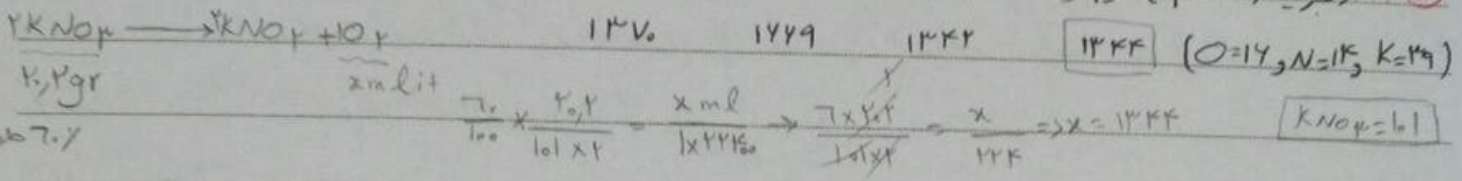 ۲KNO۳ ⟶ ۲KNO۲ + ۱O۲   ۱۳۷۰   ۱۷۷۹   ۱۳۴۲   ۱۳۴۴   (O=۱۶, N=۱۴, K=۳۹)
۲۰,۲gr   x mlit
۶۰/۱۰۰ × ۲۰,۲/۱۰۱×۲ = x ml/۱×۲۲۴۰۰ → ۶×۲۰۲/۱۰۱×۲ = x/۲۲۴ => x = ۱۳۴۴   KNO۳=۱۰۱
۶۰٪